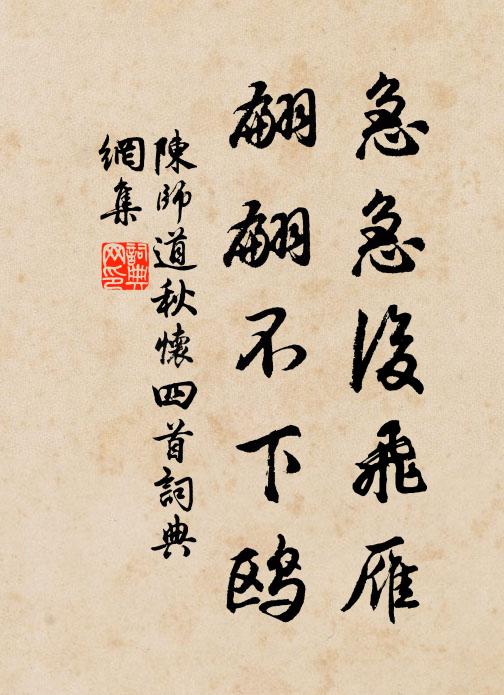 急急後飛雁
翩翩不下鸥
陳師道秋懷四首詞典
網集
詞典
网印